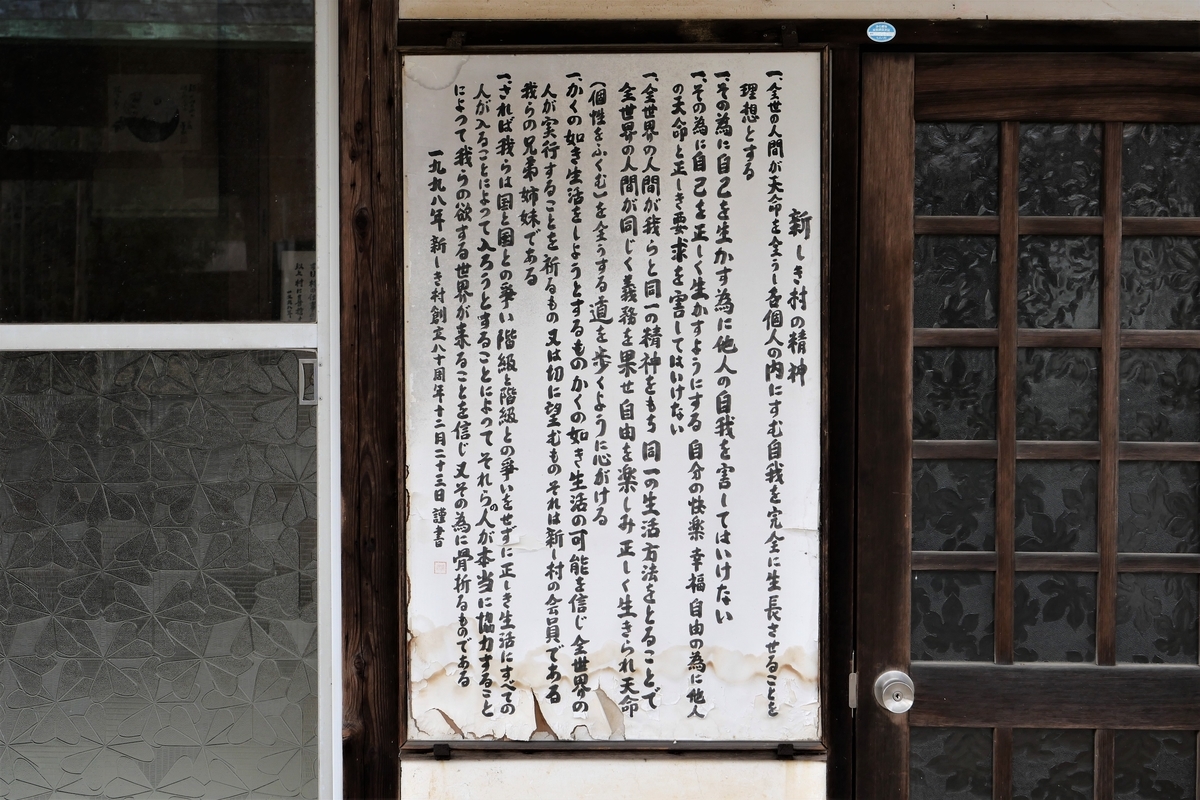 新しき村の精神
一、全世の人間が天命を全うし各個人の内にすむ自我を完全に生長させることを
理想とする
一、その為に自己を生かす為に他人の自我を害してはいけない
一、その為に自己を正しく生かすようにする 自分の快楽 幸福 自由の為に他人
の天命と正しき要求を害してはいけない
一、全世界の人間が我らと同一の精神をもち 同一の生活方法をとることで
全世界の人間が同じく義務を果せ 自由を楽しみ 正しく生きられ 天命
(個性をふくむ)を全うする道を歩くように心がける
一、かくの如き生活をしようとするもの かくの如き生活の可能を信じ 全世界の
人が実行することを祈るもの 又は切に望むもの それは新しき村の会員である
我らの兄弟姉妹である
一、されば我らは国と国との争い 階級と階級との争いをせずに 正しき生活にすべての
人が入ることによって 入ろうとすることによって それらの人が本当に協力すること
によって 我らの欲する世界が来ることを信じ 又その為に骨折るものである
一九九八年 新しき村創立八十周年十二月二十三日 謹書